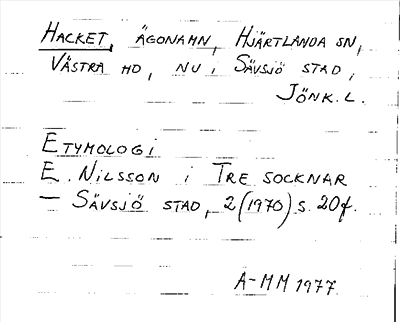 HACKET, ÄGONAMN, HJÄRTLANDA SN,
VÄSTRA HD, NU I SÄVSJÖ STAD,
JÖNK. L.
ETYMOLOGI
E. NILSSON I TRE SOCKNAR
— SÄVSJÖ STAD, 2 (1970) S. 20f.
A-MM 1977